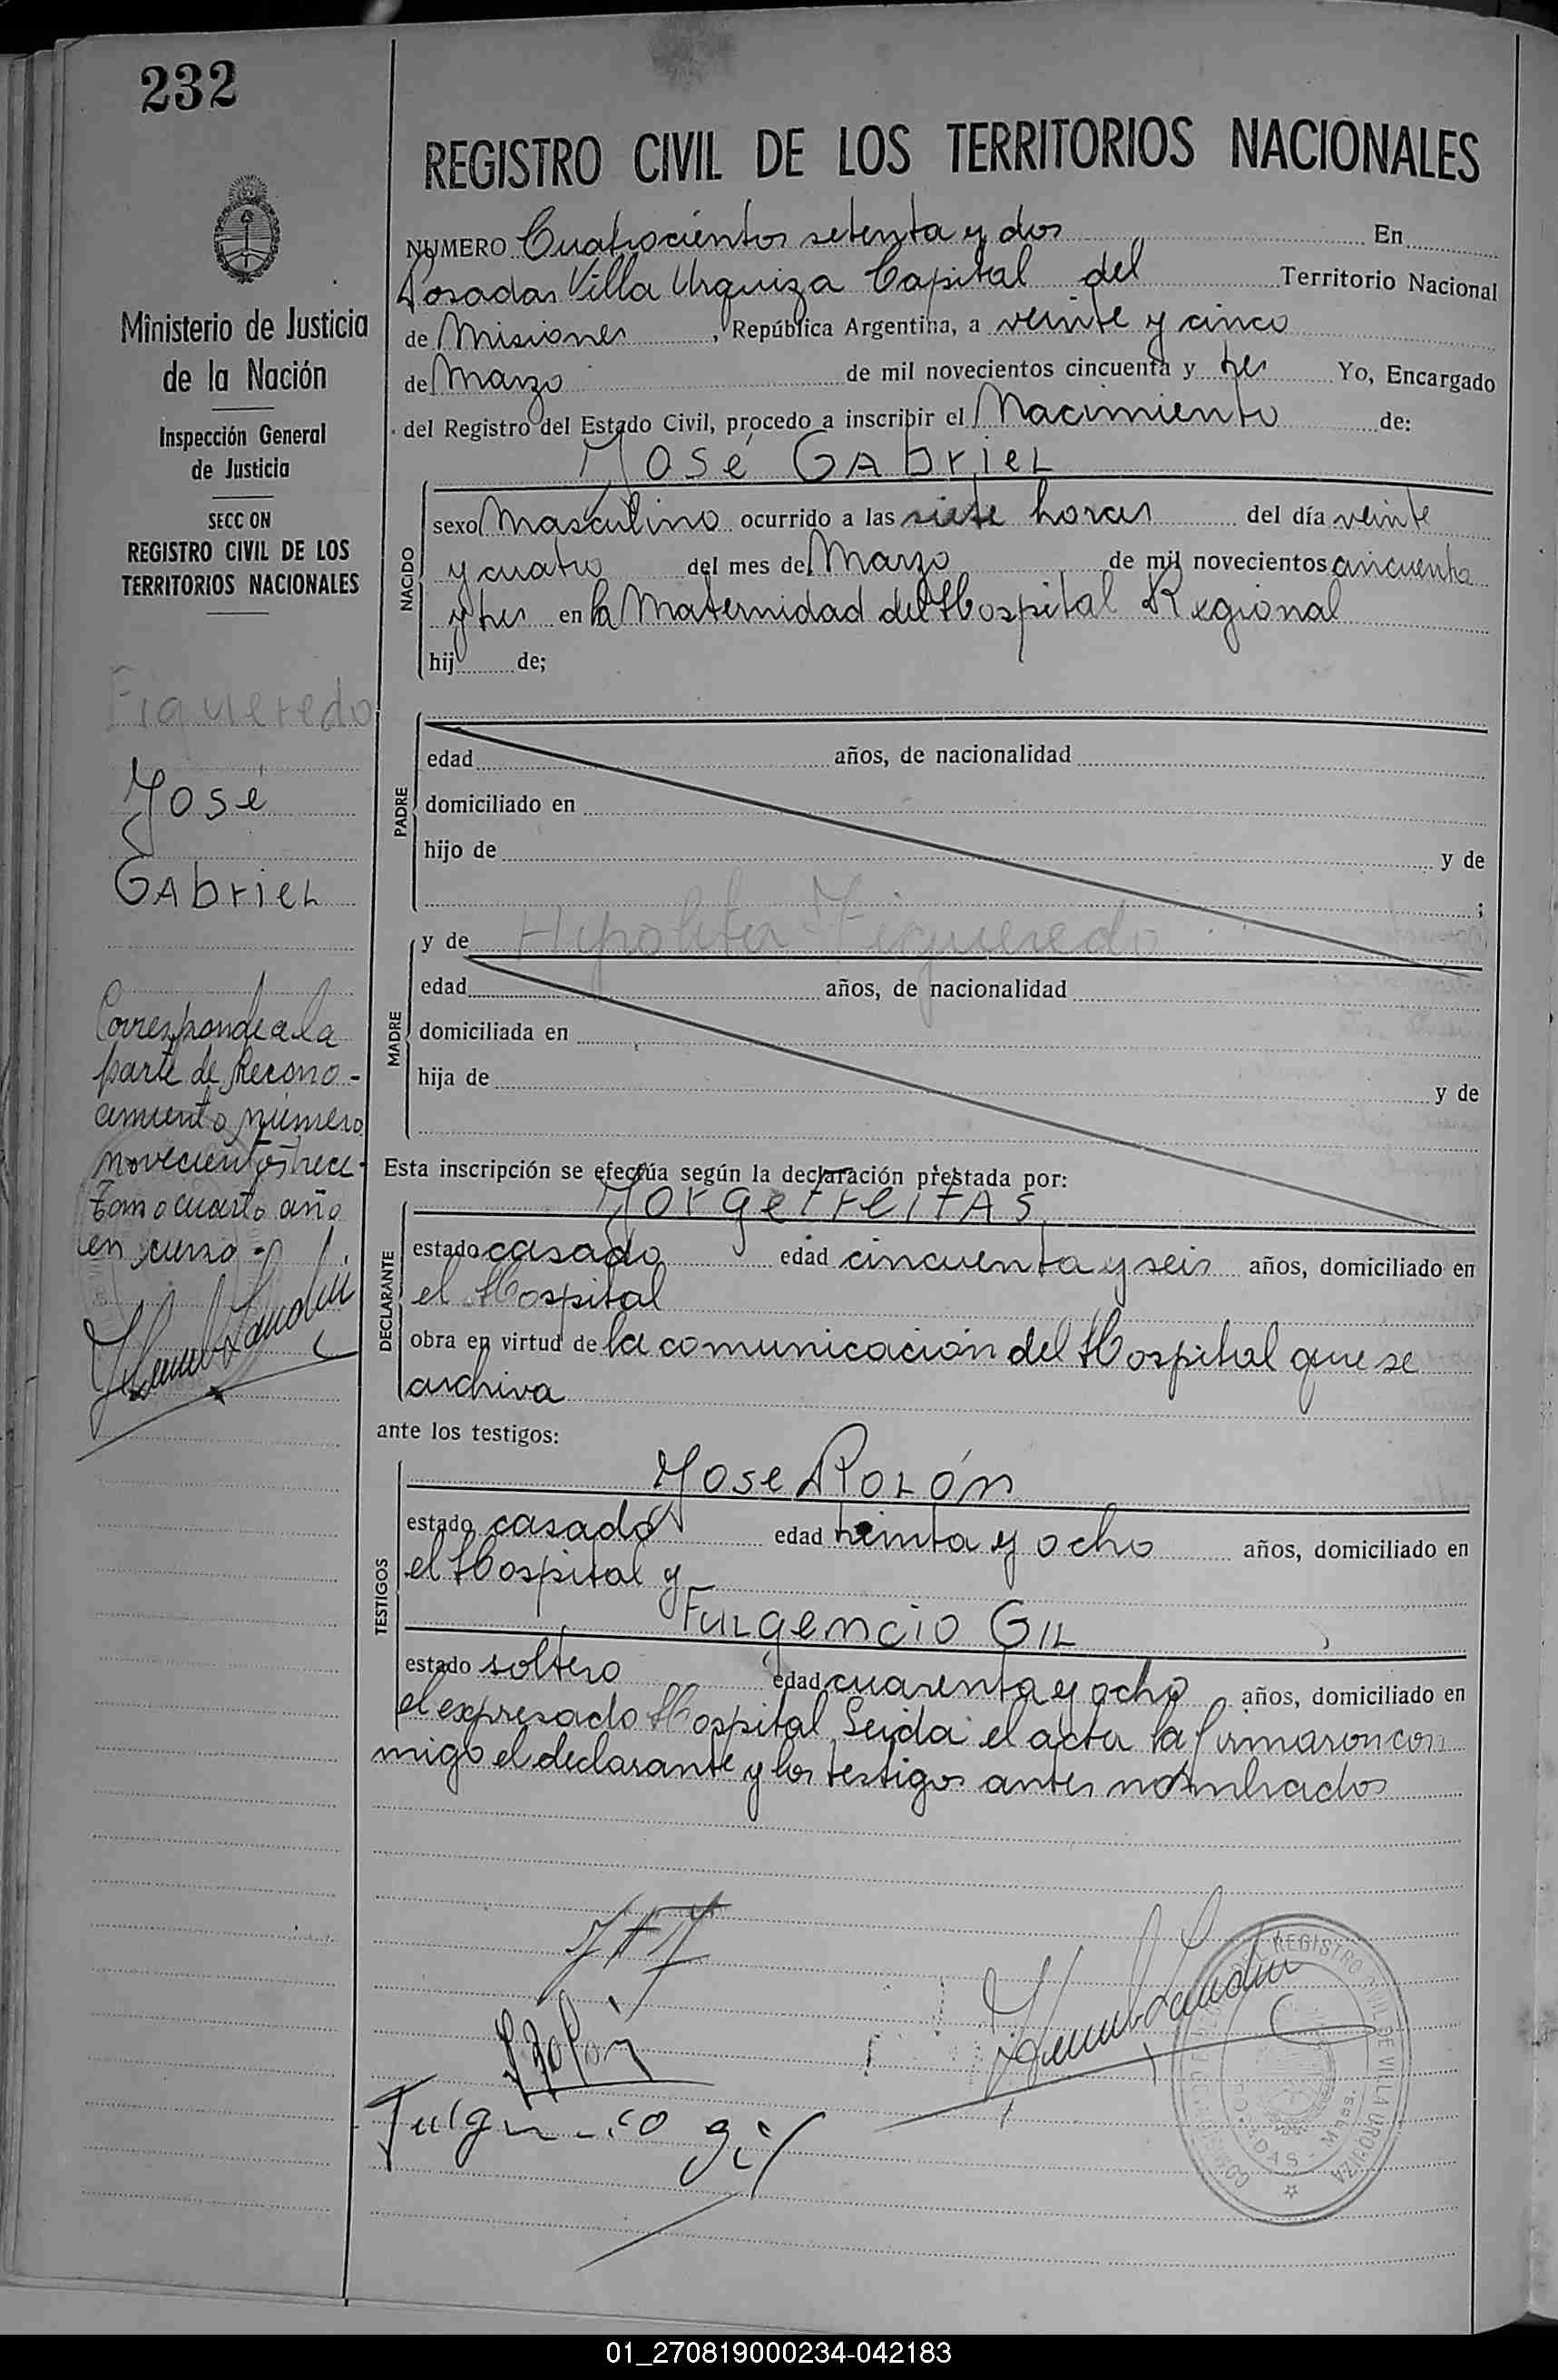 232
Ministerio de Justicia
de la Nación
Inspección General
de Justicia
SECC ON
REGISTRO CIVIL DE LOS
TERRITORIOS NACIONALES
Figueredo
José
GAbrieL
Corresponde a la
parte de Recono-
cimiento número
novecientos trece
Tomo cuarto año
en curso.
REGISTRO CIVIL DE LOS TERRITORIOS NACIONALES
NUMERO Cuatrocientos setenta y dos En
Posadas Villa Urquiza Capital del Territorio Nacional
de Misiones, República Argentina, a veinte y cinco
de Marzo de mil novecientos cincuenta y tres Yo, Encargado
del Registro del Estado Civil, procedo a inscribir el Nacimiento de:
José GAbrieL
NACIDO
sexo Masculino ocurrido a las siete horas del día veinte
y cuatro del mes de Marzo de mil novecientos cincuenta
y tres en la Maternidad del Hospital Regional
hij de;
PADRE
edad años, de nacionalidad
domiciliado en
hijo de y de
;
MADRE
y de Hipolita Figueredo
edad años, de nacionalidad
domiciliada en
hija de y de
Esta inscripción se efectúa según la declaración prestada por:
Jorge FreitAs
DECLARANTE
estado casado edad cincuenta y seis años, domiciliado en
el Hospital
obra en virtud de la comunicación del Hospital que se
archiva
ante los testigos:
TESTIGOS
Jose RoLón
estado casado edad treinta y ocho años, domiciliado en
el Hospital y
FuLgencio GiL
estado soltero edad cuarenta y ocho años, domiciliado en
el expresado Hospital Leida el acta la firmaron con
migo el declarante y los testigos antes nombrados
Fulgencio gil
REGISTRO CIVIL DE VILLA URQUIZA
POSADAS
01_270819000234-042183